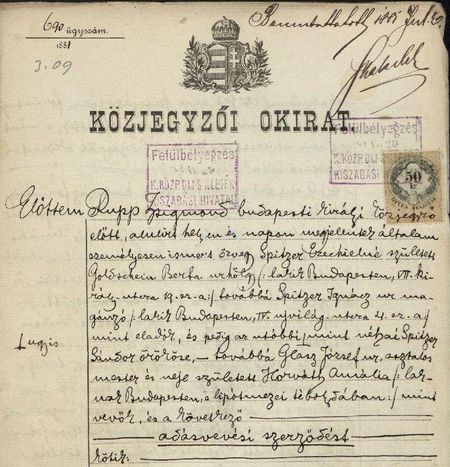 690 ügyszám.
1881
3.09
1881 Jul. 20
KÖZJEGYZŐI OKIRAT
Felülbélyegzés
K. KÖZP. DIJ- S ILLETÉK
KISZABÁSI HIVATAL
Felülbélyegzés
20
K. KÖZP. DIJ-
KISZABÁSI HIVATAL
50
kr
Előttem Rupp Zsigmond budapesti királyi közjegyző
előtt, alulirt helyen és napon megjelentek általam
személyesen ismert özveg Spitzer Ezechielné született
Goldstein Berta úrhölgy /: lakik Budapesten, VII. ki-
rály-utcza 13. sz. a :/ továbbá Spitzer Ignácz ur ma-
gánzó /: lakik Budapesten, IV. ujvilág-utcza 4. sz. a :/
mint eladók, és pedig az utóbbi, mint néhai Spitzer
Sándor örököse, – továbbá Glasz József ur, asztalos
mester és neje született Horváth Amália /: lak-
nak Budapesten, a lipótmezei tébolydában :/ mint
vevők, és a következő
adásvevési szerződést
kötik: